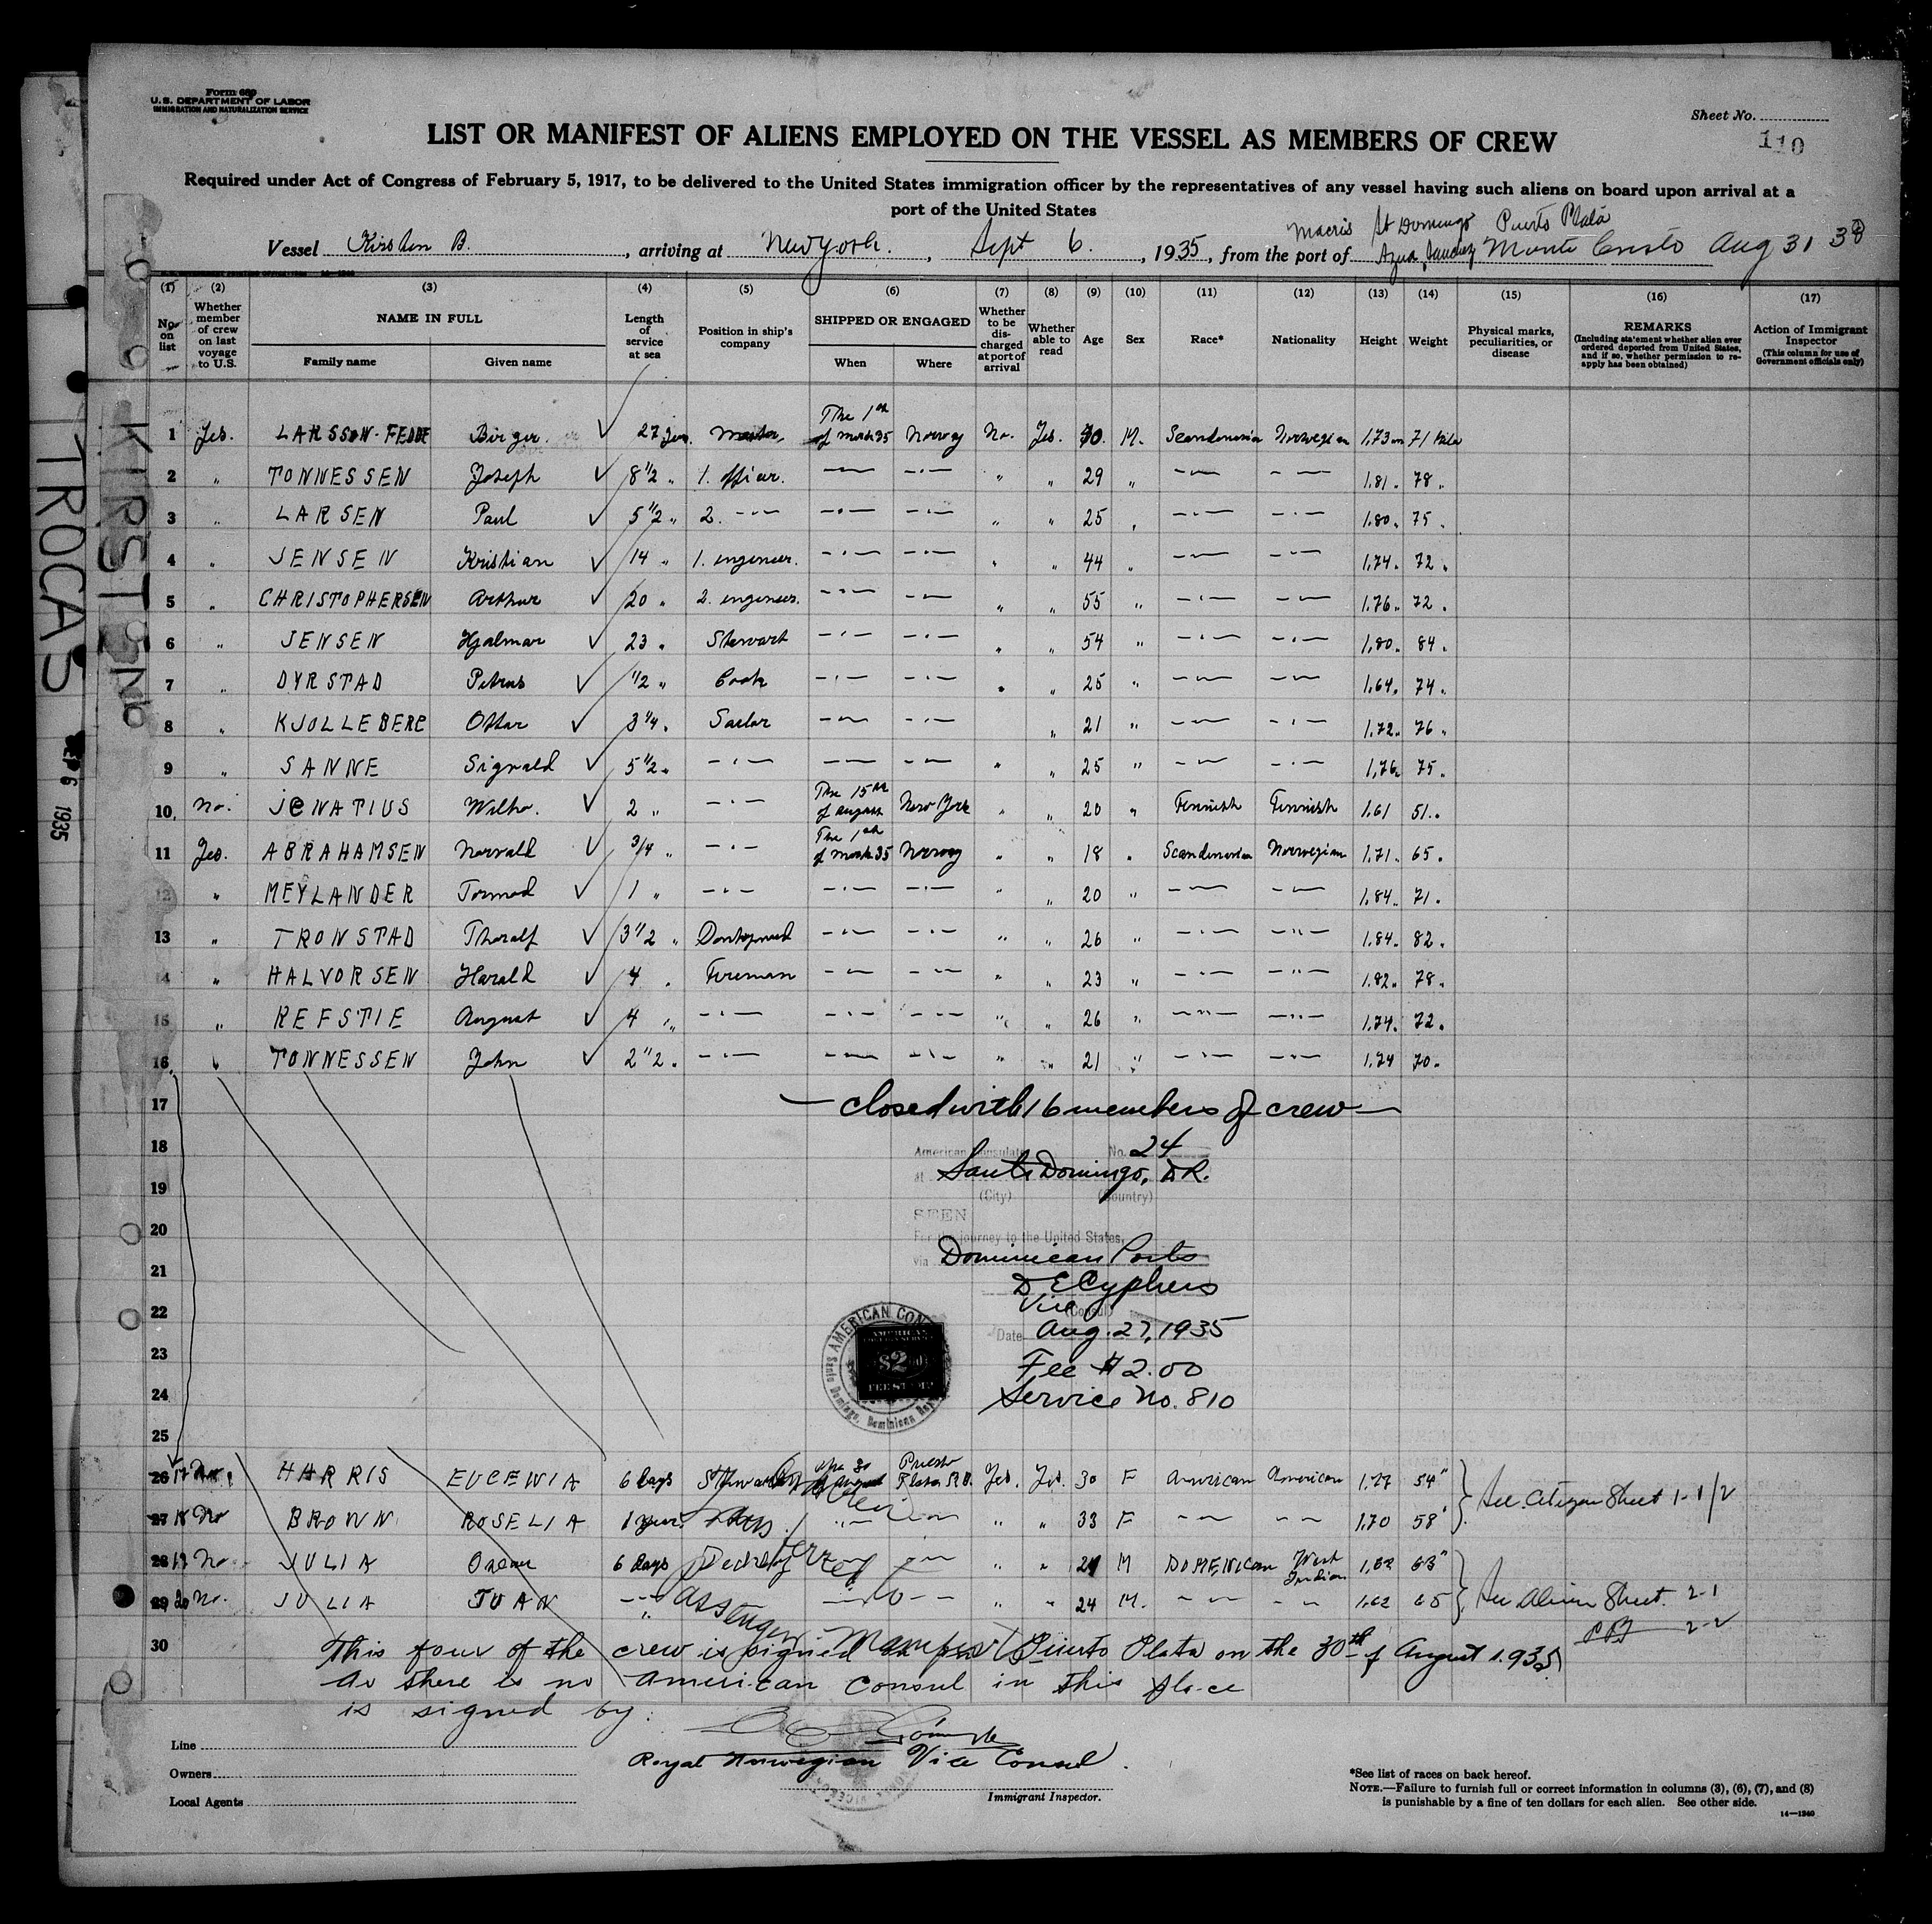 Form 689
U.S. DEPARTMENT OF LABOR
IMMIGRATION AND NATURALIZATION SERVICE
Sheet No.
110
LIST OR MANIFEST OF ALIENS EMPLOYED ON THE VESSEL AS MEMBERS OF CREW
Required under Act of Congress of February 5, 1917, to be delivered to the United States immigration officer by the representatives of any vessel having such aliens on board upon arrival at a
port of the United States
Macris St Domingo Puerto Plata
Vessel Kirsten B. , arriving at New York. , Sept 6. , 1935, from the port of Azua, Sanchez Monte Cristo Aug 31
TROCAS
KIRSTEN B
SEP 6 1935
(1) (2) (3) (4) (5) (6) (7) (8) (9) (10) (11) (12) (13) (14) (15) (16) (17)
No. on list
Whether member of crew on last voyage to U.S.
NAME IN FULL
Family name
Given name
Length of service at sea
Position in ship's company
SHIPPED OR ENGAGED
When
Where
Whether to be discharged at port of arrival
Whether able to read
Age
Sex
Race*
Nationality
Height
Weight
Physical marks, peculiarities, or disease
REMARKS
(Including statement whether alien ever ordered deported from United States, and if so, whether permission to reapply has been obtained)
Action of Immigrant Inspector
(This column for use of Government officials only)
1 Yes. LARSSON-FEDDE Birger. 27 Master The 1st of 35 Norway No. Yes. 40 M. Scandinavian Norwegian 1,73 m 71 kilo
2 " TONNESSEN Joseph 8 1/2 " 1. officer. —"— —"— " " 29 " —"— —"— 1.81. 78 "
3 " LARSEN Paul 5 1/2 " 2. —"— —"— —"— " " 25 " —"— —"— 1.80. 75 "
4 " JENSEN Kristian 14 " 1. engineer. —"— —"— " " 44 " —"— —"— 1.74. 72 "
5 " CHRISTOPHERSEN Arthur 20 " 2. engineer. —"— —"— " " 55 " —"— —"— 1.76. 72 "
6 " JENSEN Hjalmar 23 " Stewart —"— —"— " " 54 " —"— —"— 1.80. 84 "
7 " DYRSTAD Petrus 1/2 " Cook —"— —"— " " 25 " —"— —"— 1.64. 74 "
8 " KJOLLEBERG Ottar 3 1/4 " Sailor —"— —"— " 21 " —"— —"— 1.72. 76 "
9 " SANNE Sigvald 5 1/2 " —"— —"— —"— " " 25 " —"— —"— 1,76. 75 "
10 No. JGNATIUS Wilho. 2 " —"— The 15th of august New York " " 20 " Finnish Finnish 1.61 51 "
11 Yes. ABRAHAMSEN Norvald 3/4 " —"— The 1st of 35 Norway " " 18 " Scandinavian Norwegian 1.71. 65 "
12 " MEYLANDER Tormod 1 " —"— —"— —"— " " 20 " —"— —"— 1.84. 71 "
13 " TRONSTAD Thoralf 3 1/2 " —"— —"— " " 26 " —"— —"— 1.84. 82 "
14 " HALVORSEN Harald 4 " Fireman —"— —"— " " 23 " —"— —"— 1.82. 78 "
15 " REFSTIE August 4 " —"— —"— —"— " " 26 " —"— —"— 1.74. 72 "
16 " TONNESSEN John 2 1/2 " —"— —"— —"— " " 21 " —"— —"— 1.74 70 "
17 — closed with 16 members of crew —
18 American Consulate No. 24
at Santo Domingo, D.R.
19 (City) (Country)
20 SEEN
For the journey to the United States,
via Dominican Ports
21 D E Cyphers
22 Vice (Consul)
Date Aug. 27, 1935
23 Fee $2.00
24 Service No. 810
AMERICAN CONSULATE
Santo Domingo, Dominican Rep.
AMERICAN FOREIGN SERVICE
$2.00
FEE STAMP
25
26 17 No. HARRIS EUGENIA 6 days 30 of august Puerto Plata R.D. Yes. Yes. 30 F American American 1.77 54 " } See Citizen Sheet 1-1/2
27 18 No BROWN ROSELIA 1 year —"— —"— " " 33 F —"— —"— 1.70 58 "
28 19 No. JULIA Oscar 6 days —"— —"— " " 21 M DOMENICan West Indian 1,62 63 " } See Alien Sheet. 2-1
29 20 No. JULIA JUAN —"— —"— —"— " " 24 M. —"— —"— 1.62 65 2-2
Transferred to Passenger Manifest
30 This four of the crew is signed on in Puerto Plata on the 30th of August 1.935
As there is no american consul in this place
is signed by:
Royal Norwegian Vice Consul.
Line
Owners
Local Agents
Immigrant Inspector.
*See list of races on back hereof.
NOTE.—Failure to furnish full or correct information in columns (3), (6), (7), and (8)
is punishable by a fine of ten dollars for each alien. See other side.
14—1240